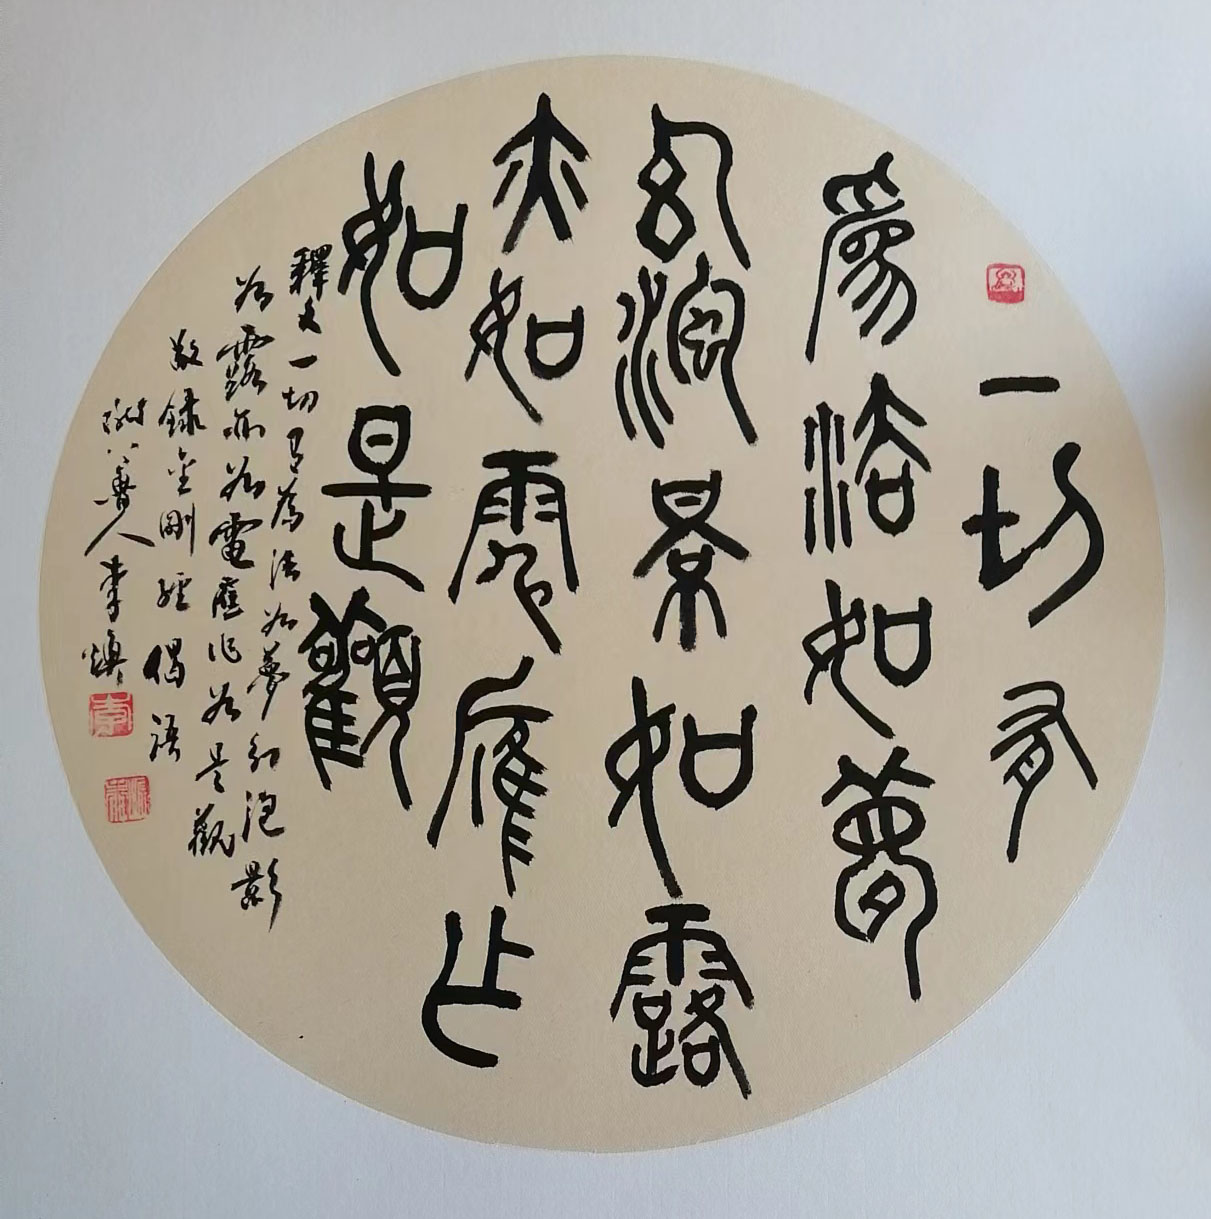 一切有
為法如夢
幻泡景如露
亦如電應作
如是觀
釋文一切有為法如夢幻泡影
如露亦如電應作如是觀
敬錄金剛經偈語
人李煥